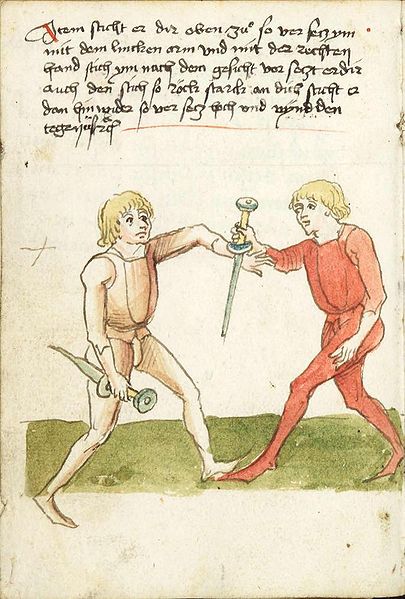 Item sticht er dir oben zuo so ver secz ym
mit dem lincken arm vnd mit der rechten
hand stich ym nach dem gesicht ver seczt er dir
auch den stich so röck starck an dich sticht er
dan hin wider so ver secz hoch vnd wind den